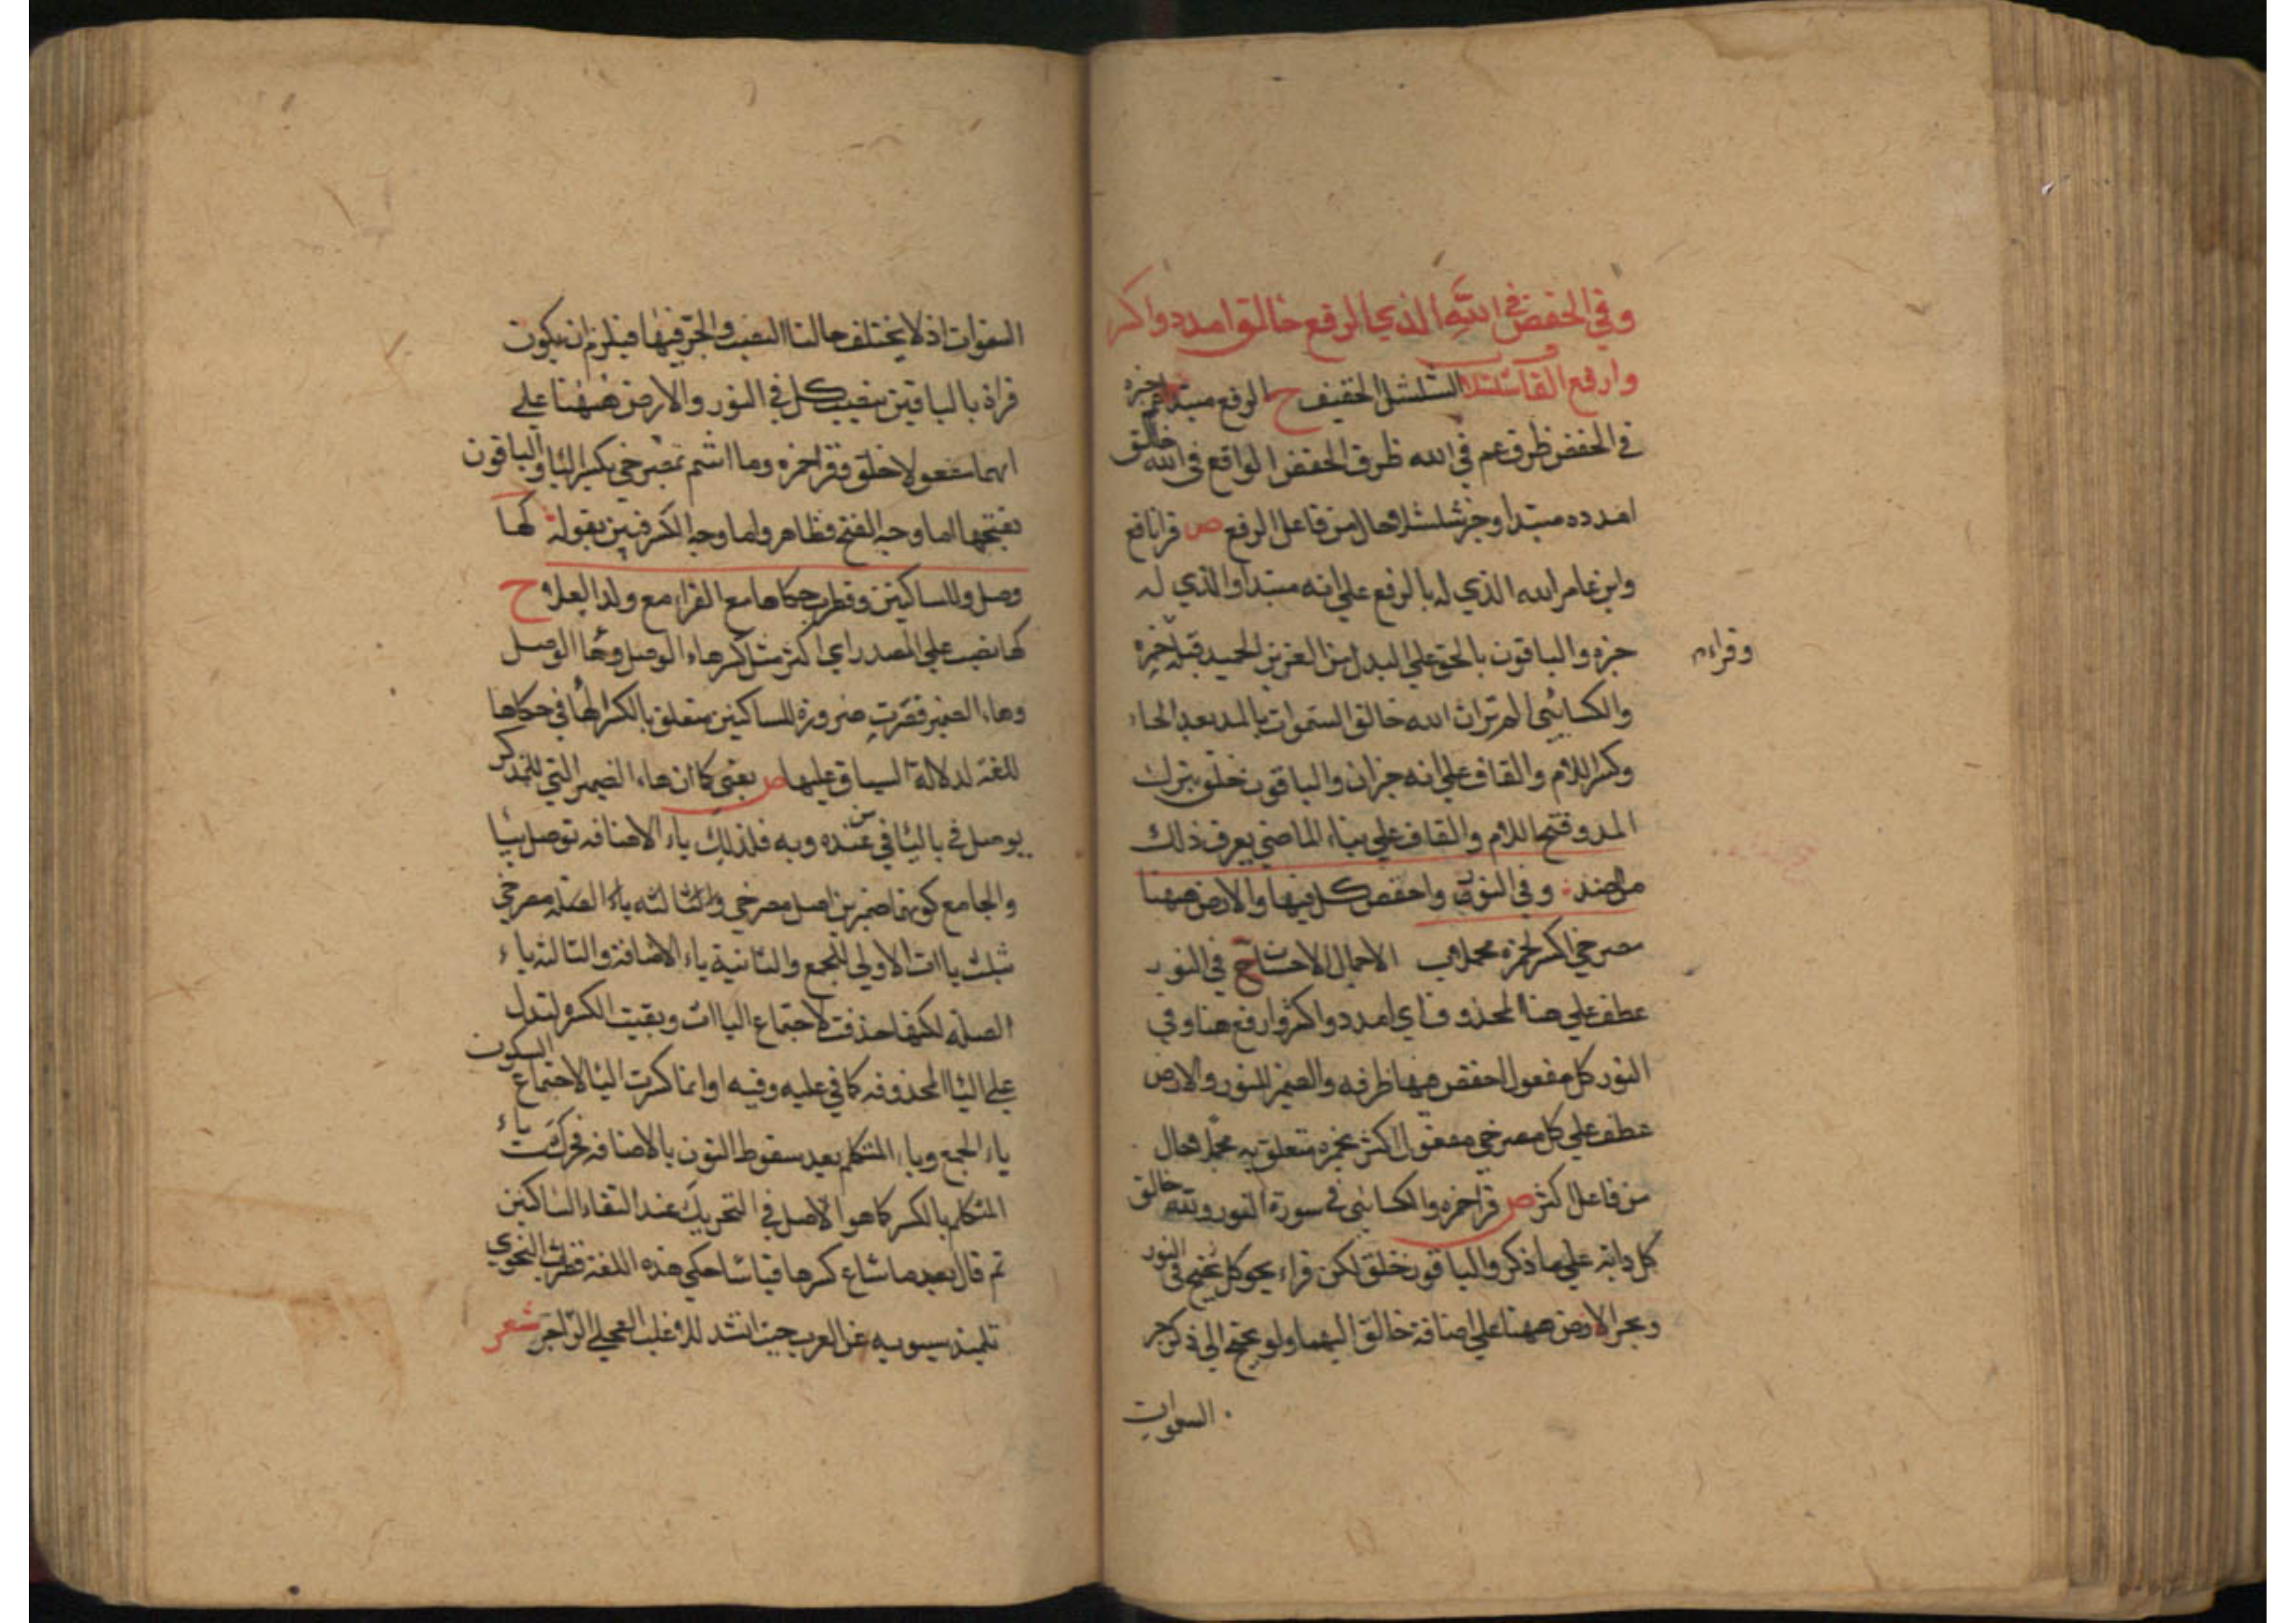 وفي الخفض في الله الذي الرفع خالق امدده واكسر
وارفع القاف شلشلا الشلشل الخفيف ح الرفع مبتدأ عم خبره
في الخفض ظرف عم في الله ظرف الخفض الواقع في الله خالق
امدده مبتدا وخبر شلشلا حال من فاعل الرفع ص قرا نافع
وابن عامر الله الذي له بالرفع علي انه مبتدا والذي له
خبره والباقون بالجر علي البدل من العزيز الحميد قبله حمزة
وقراء
والكسائي الم تر ان الله خالق السموات بالمد بعد الخاء
وكسر اللام والقاف علي انه خبر ان والباقون خلق بترك
المد وفتح اللام والقاف علي بناء الماضي يعرف ذلك
من الضد وفي النور واخفض كل فيها والارض ههنا
مصرخي اكسر لحمزة مجملا هي الاجمال الاحسان ح في النور
عطف علي هنا المحذوف اي امدد واكسر وارفع هنا وفي
النور كل مفعول اخفض فيها ظرفه والضمير للنور والارض
عطف علي كل مصرخي مفعول اكسر لحمزة متعلق به مجملا حال
من فاعل اكسر ص قرا حمزة والكسائي في سورة النور والله خالق
كل دابة علي ما ذكر والباقون خلق لكن قراء بجر كل في النور
وبجر الارض ههنا علي اضافة خالق اليهما ولم يحتج الي ذكر جر
السموات
السموات اذ لا يختلف حالتا النصب والجر فيها فيلزم ان يكون
قراة بالباقين بنصب كل في النور والارض ههنا علي
انهما مفعولا خلق وقرا حمزة وما انتم بمصرخي بكسر اليا والباقون
بفتحها اما وجه الفتح فظاهر واما وجه الكسر فبين بقوله كها
وصل وللساكنين وقطرب حكاها مع الفراء مع ولد العلا ح
كها نصب علي المصدر اي اكسر مثل كسر هاء الوصل وها الوصل
وهاء الضمير للساكنين متعلق بالكسر لها في حكاها
للغة لدلالة السياق عليها ص يعني كما ان هاء الضمير التي للمذكر
يوصل باليا في من عنده وبه فلذلك ياء الاضافه توصل بيا
والجامع كونهما ضميرين اصل مصرخي والثالثه ياء الصلة مصرخي
بثلث ياات الاولي للجمع والثانية ياء الاضافة والثالثه ياء
الصلة لكنها حذفت لاجتماع الياات وبقيت الكسرة لتدل
علي اليا المحذوفه كما في عليه وفيه اوانما كسرت اليا لاجتماع السكون
ياء الجمع وياء المتكلم بعد سقوط النون بالاضافه فحركت ياء
المتكلم بالكسر كما هو الاصل في التحريك عند التقاء الساكنين
ثم قال بعد ما شاع كسرها قياسا حكي هذه اللغة قطرب النحوي
تلميذ سيبويه عن العرب حيث انشد للاغلب العجلي الراجز شعر